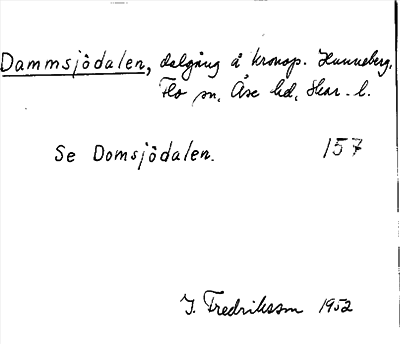 Dammsjödalen, dalgång å kronop. Hunneberg,
Flo sn, Åse hd, Skar. l.
Se Domsjödalen. 157
I. Fredriksson 1952